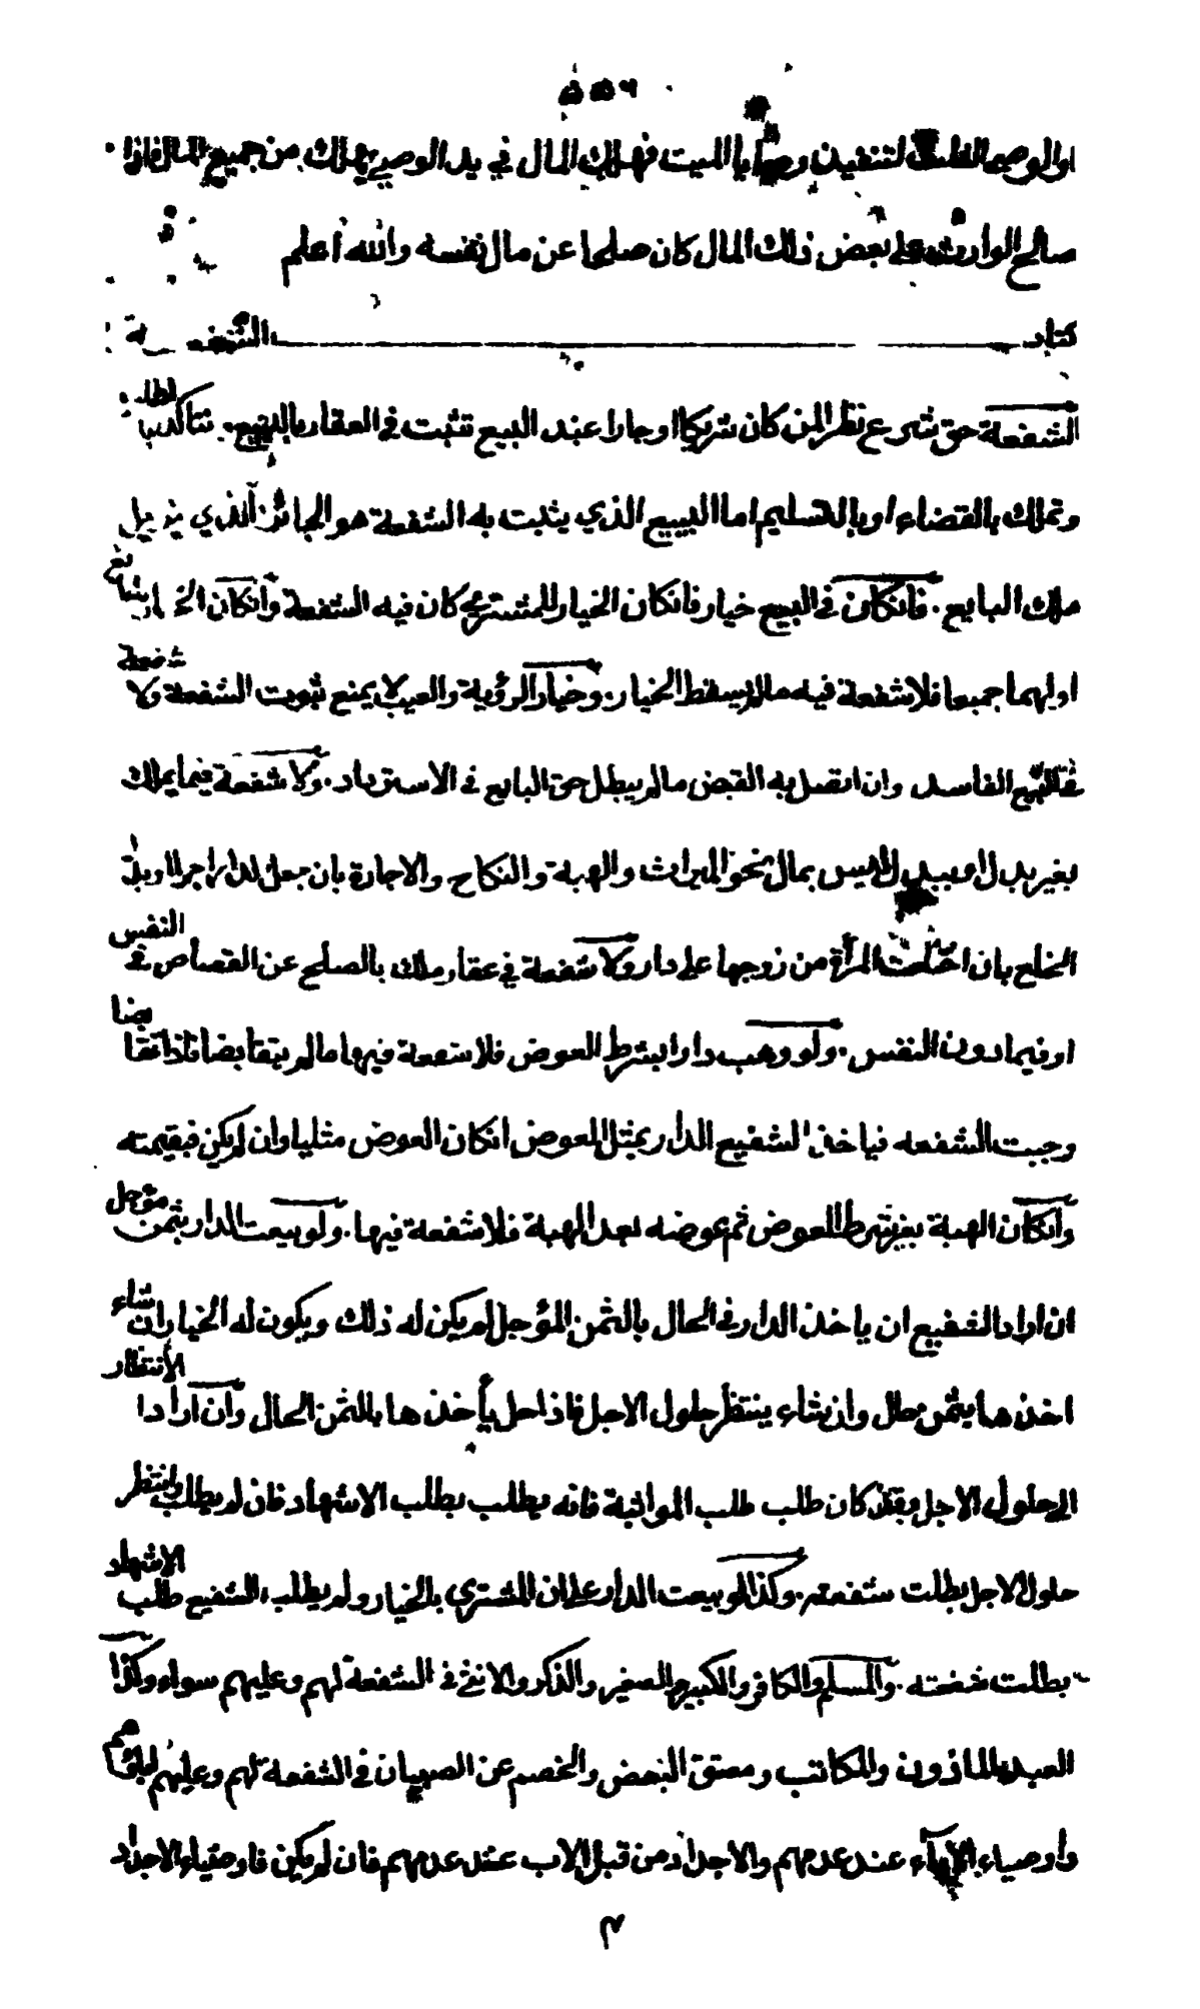 او الوصي الثلث لتنفيذ وصايا الميت فهلك المال في يد الوصي يهلك من جميع المال فاذا
صالح الوارث على بعض ذلك المال كان صلحا عن مال نفسه والله اعلم
كتاب الشفعة
الشفعة حق شرع نظرا لمن كان شريكا او جارا عند البيع تثبت في العقار بالبيع. تتاكد بالطلب
وتملك بالقضاء او بالتسليم اما البيع الذي يثبت به الشفعة هو الجائز الذي يزيل
ملك البايع. فانكان في البيع خيار فانكان الخيار للمشتري كان فيه الشفعة وانكان الخيار للبايع
او لهما جميعا فلا شفعة فيه ما لم يسقط الخيار. وخيار الرؤية والعيب لا يمنع ثبوت الشفعة ولا شفعة
في البيع الفاسد وان اتصل به القبض ما لم يبطل حق البايع في الاسترداد. ولا شفعة فيما يملك
بغير بدل او ببدل ليس بمال نحو الميراث والهبة والنكاح والاجارة بان جعل الدار اجرا او بدل
الخلع بان اختلعت المرأة من زوجها على دار ولا شفعة في عقار ملك بالصلح عن القصاص في النفس
او فيما دون النفس. ولو وهب دارا بشرط العوض فلا شفعة فيها ما لم يتقابضا فاذا تقابضا
وجبت الشفعه فياخذ الشفيع الدار بمثل العوض انكان العوض مثليا وان لم يكن فبقيمته
وانكان الهبة بغير شرط العوض ثم عوضه بعد الهبة فلا شفعة فيها. ولو بيعت الدار بثمن مؤجل
ان اراد الشفيع ان ياخذ الدار في الحال بالثمن المؤجل لم يكن له ذلك ويكون له الخيار ان شاء
اخذها بثمن حال وان شاء ينتظر حلول الاجل فاذا حل يأخذها بالثمن الحال وان اراد الانتظار
الى حلول الاجل وقد كان طلب طلب المواثبة فانه يطلب بطلب الاشهاد فان لم يطلب وانتظر
حلول الاجل بطلت شفعته. وكذا لو بيعت الدار على ان المشتري بالخيار ولم يطلب الشفيع طلب الاشهاد
بطلت شفعته. والمسلم والكافر والكبير والصغير والذكر والانثى في الشفعة لهم وعليهم سواء وكذا
العبد الماذون والمكاتب ومعتق البعض والخصم عن الصبيان في الشفعة لهم وعليهم اباؤهم
واوصياء الاباء عند عدمهم والاجداد من قبل الاب عند عدمهم فان لم يكن فاوصياء الاجداد